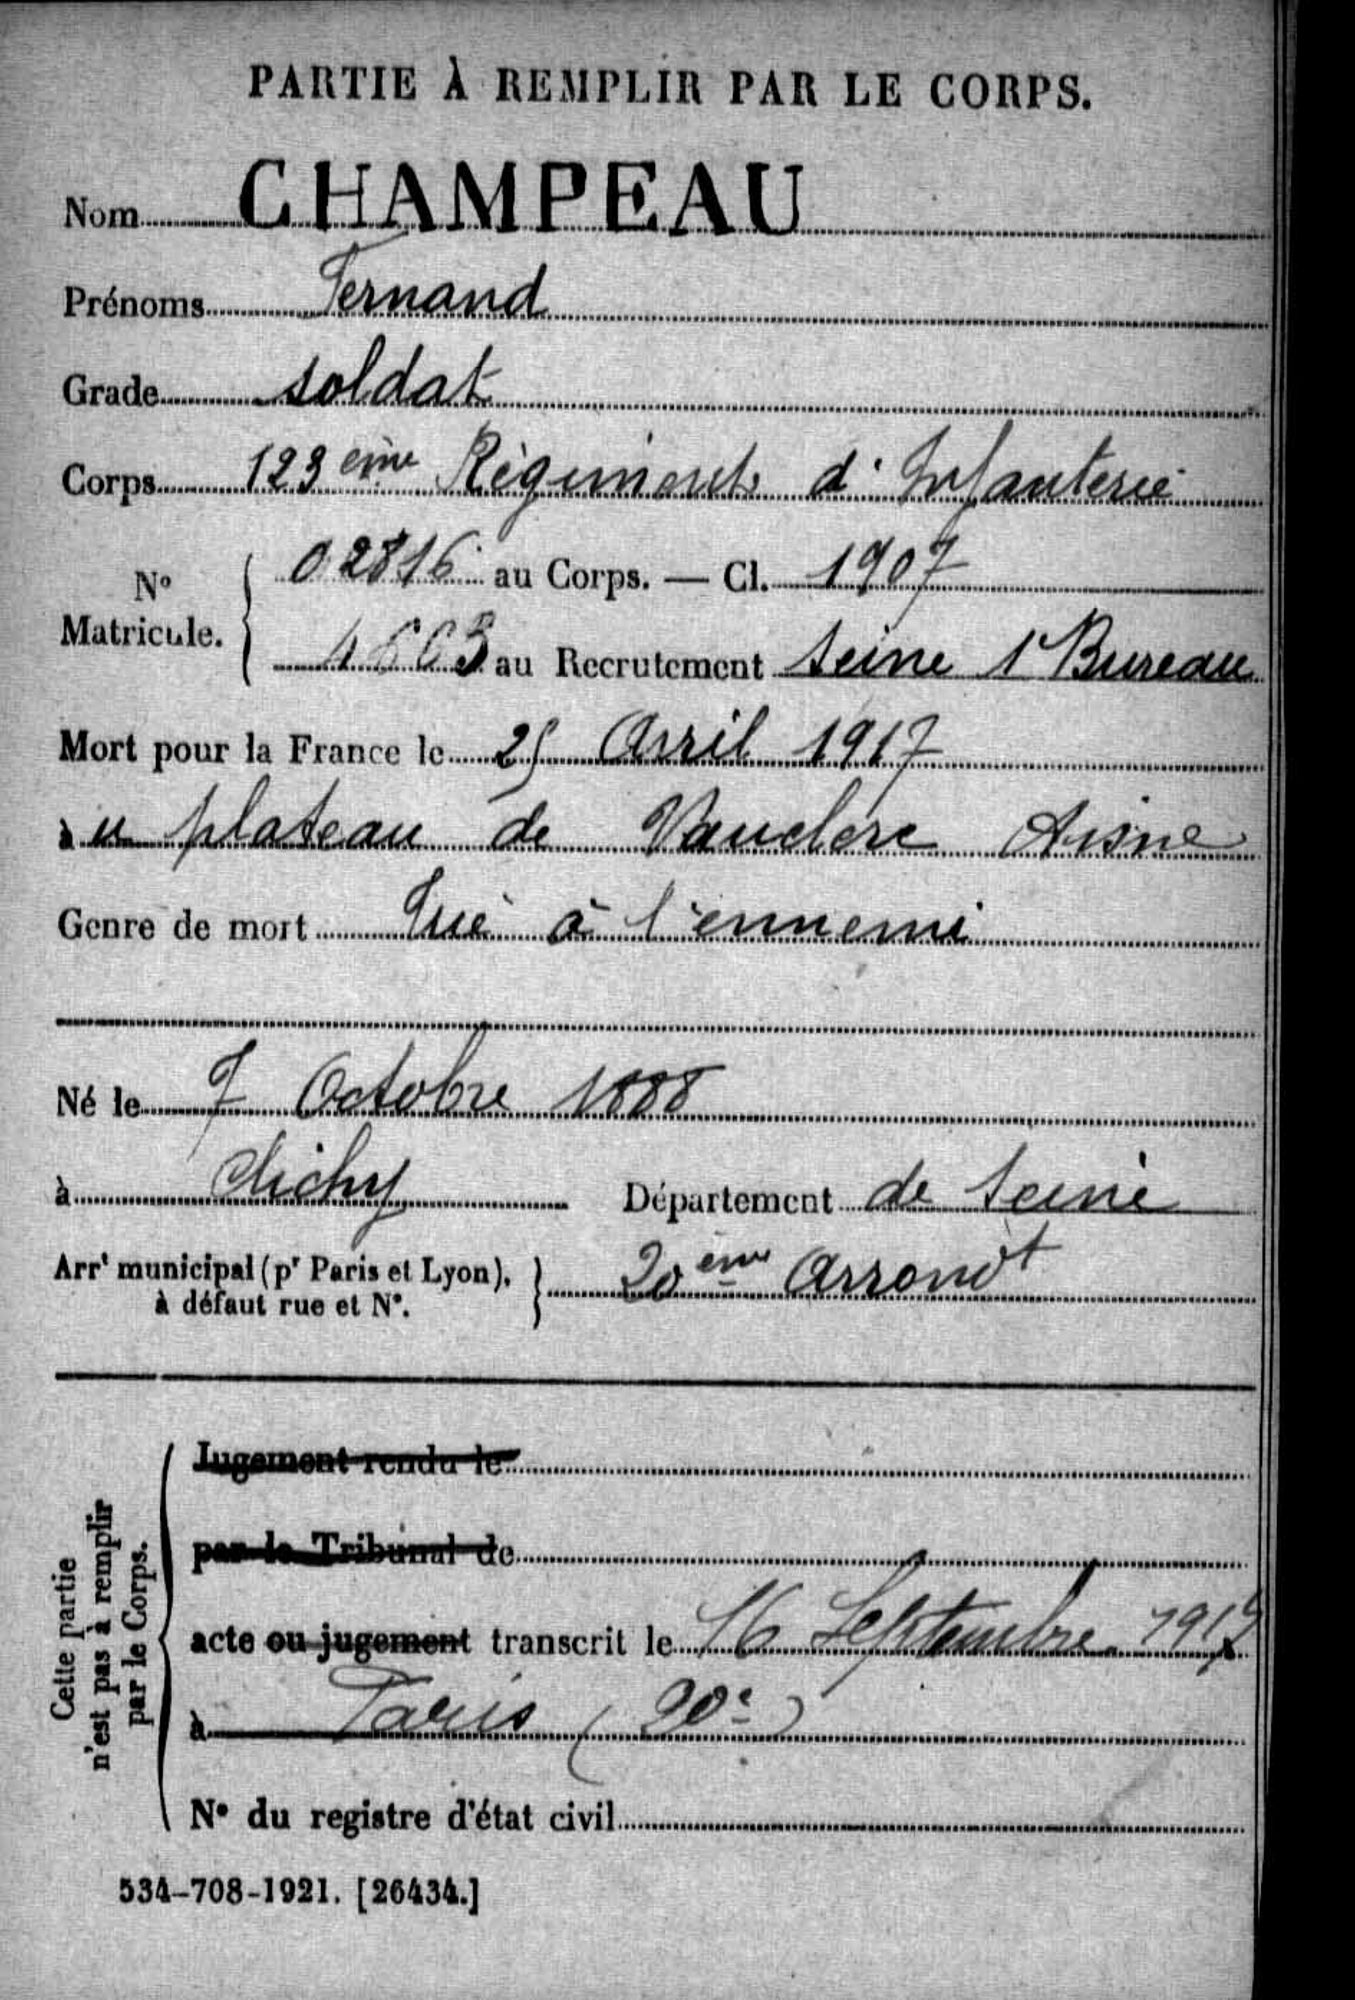 PARTIE À REMPLIR PAR LE CORPS.
Nom CHAMPEAU
Prénoms Fernand
Grade soldat
Corps 123 eme Régiment d'Infanterie
N° Matricule. 02816 au Corps. — Cl. 1907
au Recrutement Seine 1r Bureau
Mort pour la France le 25 Avril 1917
à u plateau de Vauclerc Aisne
Genre de mort Tué à l'ennemi
Né le 7 Octobre 1888
à Clichy Département de Seine
Arrt municipal (pr Paris et Lyon), à défaut rue et N°. 20 eme Arrondt
Cette partie n'est pas à remplir par le Corps.
Jugement rendu le
par le Tribunal de
acte ou jugement transcrit le 16 Septembre
à Paris (20e)
N° du registre d'état civil
534-708-1921. [26434.]